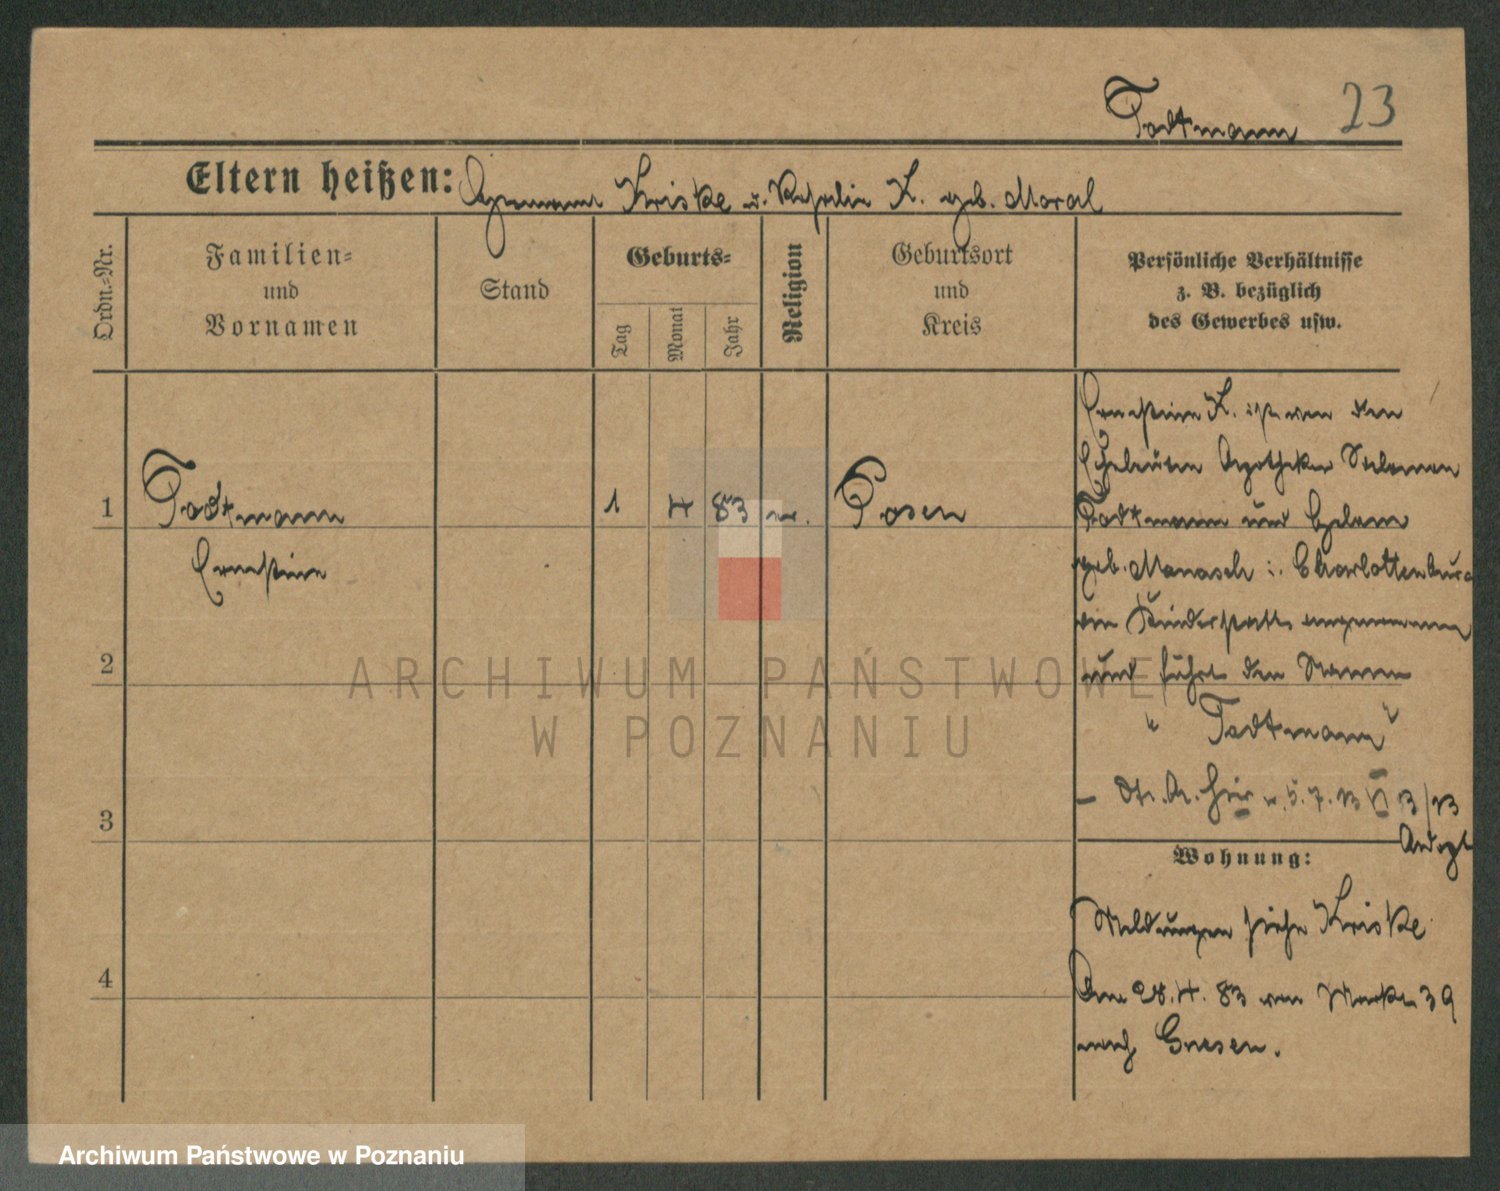 Todtmann 23
Eltern heißen: Hermann Kriske u. Rosalie K. geb. Moral
Ordn.=Nr.
Familien=
und
Vornamen
Stand
Geburts=
Tag
Monat
Jahr
Religion
Geburtsort
und
Kreis
Persönliche Verhältnisse
z. B. bezüglich
des Gewerbes usw.
1 Todtmann 1 4 83 m. Posen
Ernestine
2
3
4
Ernestine K. ist von den
Eheleuten Apotheker Salomon
Todtmann und
geb. Manasch i. Charlottenburg
an Kindesstatt angenommen
und führt den Namen
" Todtmann "
5.7.13 3/13
Wohnung:
Meldungen siehe Kriske
Am 28.4.83 von 39
nach Gnesen.
ARCHIWUM PAŃSTWOWE
W POZNANIU
Archiwum Państwowe w Poznaniu